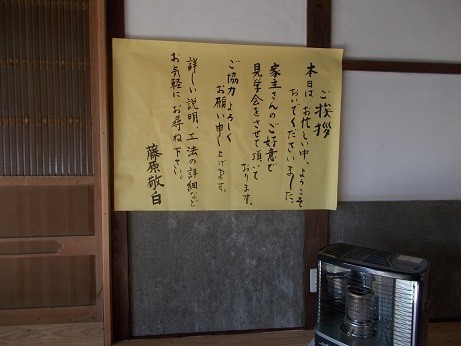 ご挨拶
本日は、お忙しい中、ようこそ
おいでくださいました。
家主さんのご好意で
見学会をさせて頂いて
おります。
ご協力よろしく
お願い申し上げます。
詳しい説明、工法の詳細など
お気軽にお尋ね下さい。
藤原敬白